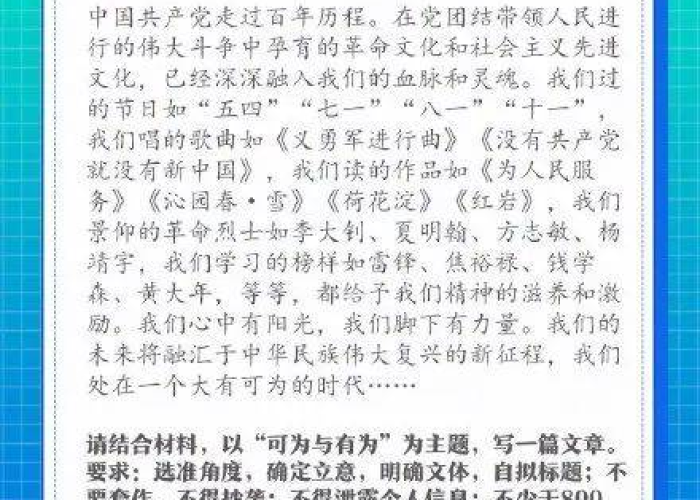 中国共产党走过百年历程。在党团结带领人民进
行的伟大斗争中孕育的革命文化和社会主义先进
文化，已经深深融入我们的血脉和灵魂。我们过
的节日如“五四”“七一”“八一”“十一”，
我们唱的歌曲如《义勇军进行曲》《没有共产党
就没有新中国》，我们读的作品如《为人民服
务》《沁园春·雪》《荷花淀》《红岩》，我们
景仰的革命烈士如李大钊、夏明翰、方志敏、杨
靖宇，我们学习的榜样如雷锋、焦裕禄、钱学
森、黄大年，等等，都给予我们精神的滋养和激
励。我们心中有阳光，我们脚下有力量。我们的
未来将融汇于中华民族伟大复兴的新征程，我们
处在一个大有可为的时代……
请结合材料，以“可为与有为”为主题，写一篇文章。
要求：选准角度，确定立意，明确文体，自拟标题；不
要套作，不得抄袭；不得泄露个人信息；不少于800